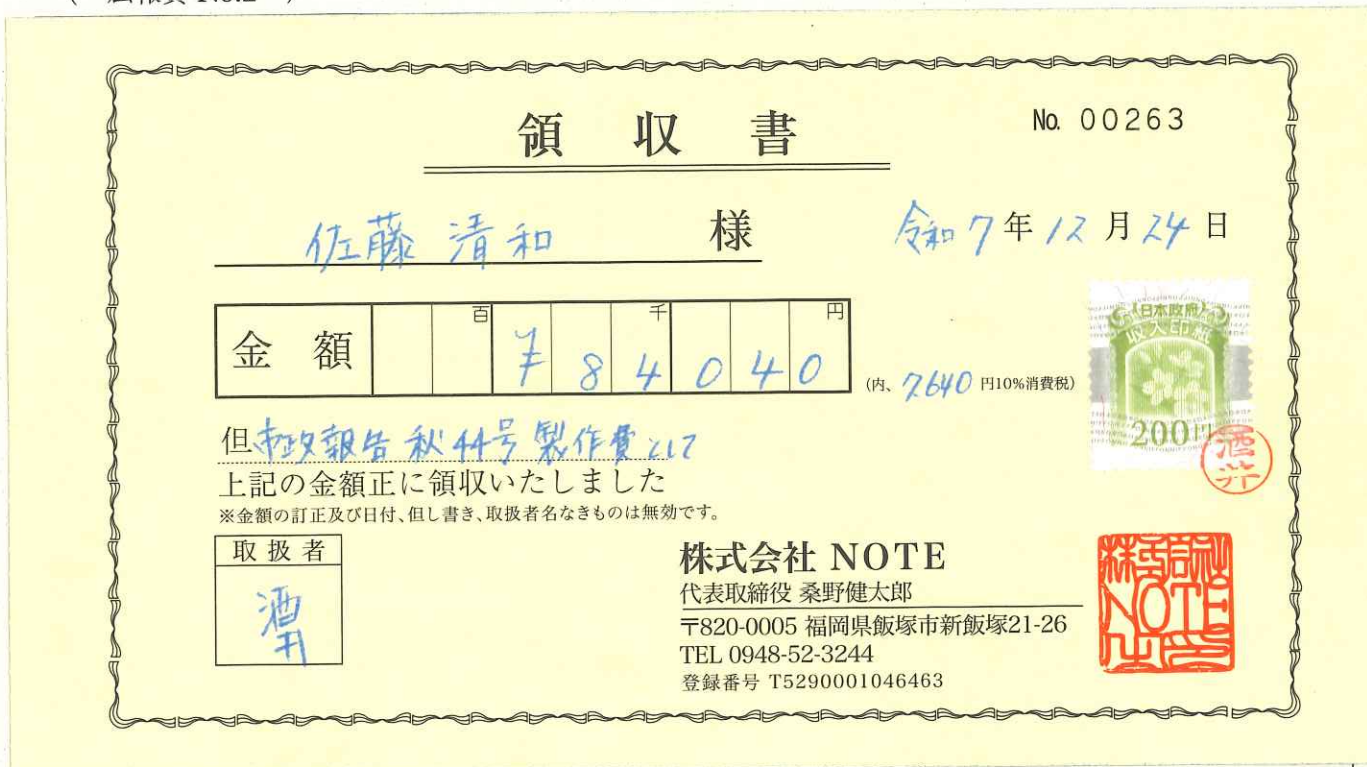 領収書
No. 00263
佐藤 清和 様
令和7年12月24日
金額 百 千 円
¥84040
(内、7640円10%消費税)
日本政府
収入印紙
200円
酒井
但 市政報告 秋44号 製作費として
上記の金額正に領収いたしました
※金額の訂正及び日付、但し書き、取扱者名なきものは無効です。
取扱者
酒井
株式会社 NOTE
代表取締役 桑野健太郎
〒820-0005 福岡県飯塚市新飯塚21-26
TEL 0948-52-3244
登録番号 T5290001046463